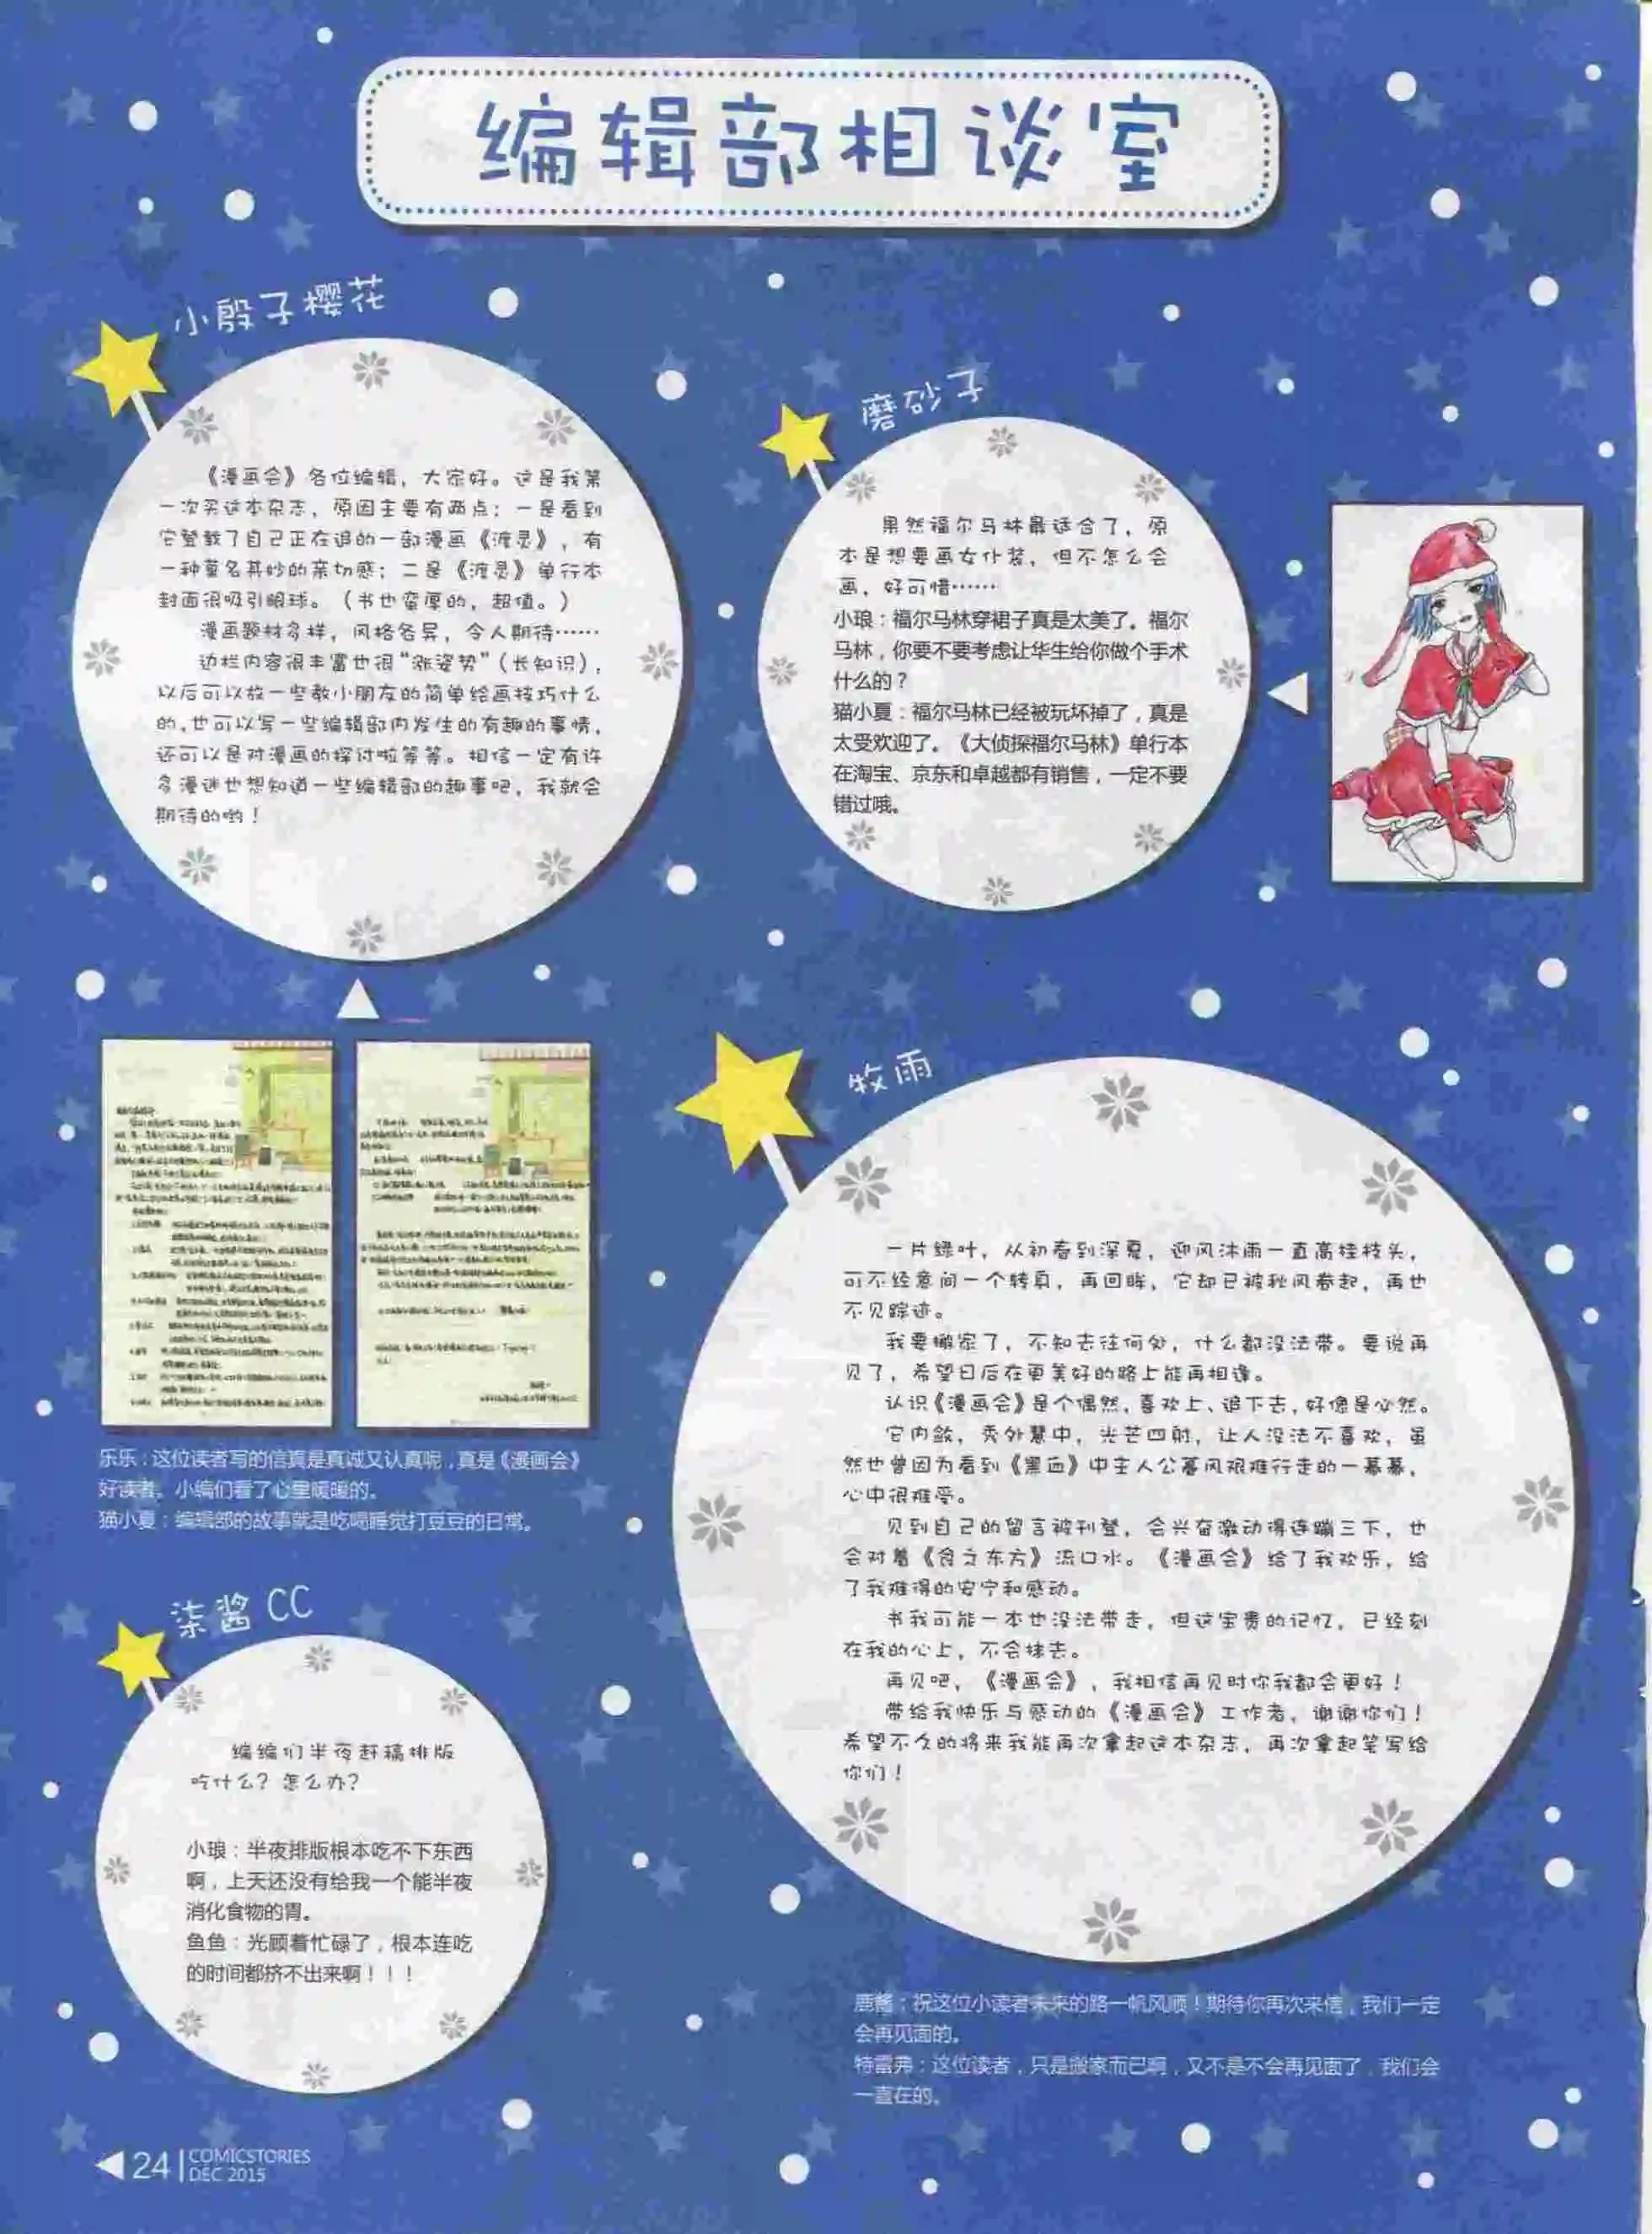 编辑部相谈室
小骰子樱花
《漫画会》各位编辑，大家好。这是我第
一次买这本杂志，原因主要有两点：一是看到
它登载了自己正在追的一部漫画《渡灵》，有
一种莫名其妙的亲切感；二是《渡灵》单行本
封面很吸引眼球。（书也蛮厚的，超值。）
漫画题材多样，风格各异，令人期待……
边栏内容很丰富也很“涨姿势”（长知识），
以后可以放一些教小朋友的简单绘画技巧什么
的，也可以写一些编辑部内发生的有趣的事情，
还可以是对漫画的探讨啦等等。相信一定有许
多漫迷也想知道一些编辑部的趣事吧，我就会
期待的哟！
乐乐：这位读者写的信真是真诚又认真呢，真是《漫画会》
好读者。小编们看了心里暖暖的。
猫小夏：编辑部的故事就是吃喝睡觉打豆豆的日常。
磨砂子
果然福尔马林最适合了，原
本是想要画女仆装，但不怎么会
画，好可惜……
小琅：福尔马林穿裙子真是太美了。福尔
马林，你要不要考虑让华生给你做个手术
什么的？
猫小夏：福尔马林已经被玩坏掉了，真是
太受欢迎了。《大侦探福尔马林》单行本
在淘宝、京东和卓越都有销售，一定不要
错过哦。
柒酱CC
编编们半夜赶稿排版
吃什么？怎么办？
小琅：半夜排版根本吃不下东西
啊，上天还没有给我一个能半夜
消化食物的胃。
鱼鱼：光顾着忙碌了，根本连吃
的时间都挤不出来啊！！！
牧雨
一片绿叶，从初春到深夏，迎风沐雨一直高挂枝头，
可不经意间一个转身，再回眸，它却已被秋风卷起，再也
不见踪迹。
我要搬家了，不知去往何处，什么都没法带。要说再
见了，希望日后在更美好的路上能再相逢。
认识《漫画会》是个偶然，喜欢上、追下去，好像是必然。
它内敛，秀外慧中，光芒四射，让人没法不喜欢，虽
然也曾因为看到《黑血》中主人公暮风艰难行走的一幕幕，
心中很难受。
见到自己的留言被刊登，会兴奋激动得连蹦三下，也
会对着《食之东方》流口水。《漫画会》给了我欢乐，给
了我难得的安宁和感动。
书我可能一本也没法带走，但这宝贵的记忆，已经刻
在我的心上，不会抹去。
再见吧，《漫画会》，我相信再见时你我都会更好！
带给我快乐与感动的《漫画会》工作者，谢谢你们！
希望不久的将来我能再次拿起这本杂志，再次拿起笔写给
你们！
鹿酱：祝这位小读者未来的路一帆风顺！期待你再次来信，我们一定
会再见面的。
特雷弗：这位读者，只是搬家而已啊，又不是不会再见面了，我们会
一直在的。
24 COMICSTORIES
DEC 2015